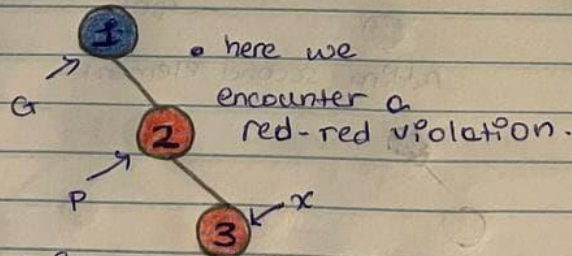 1
• here we
G
encounter a
2
red-red violation.
P
x
3